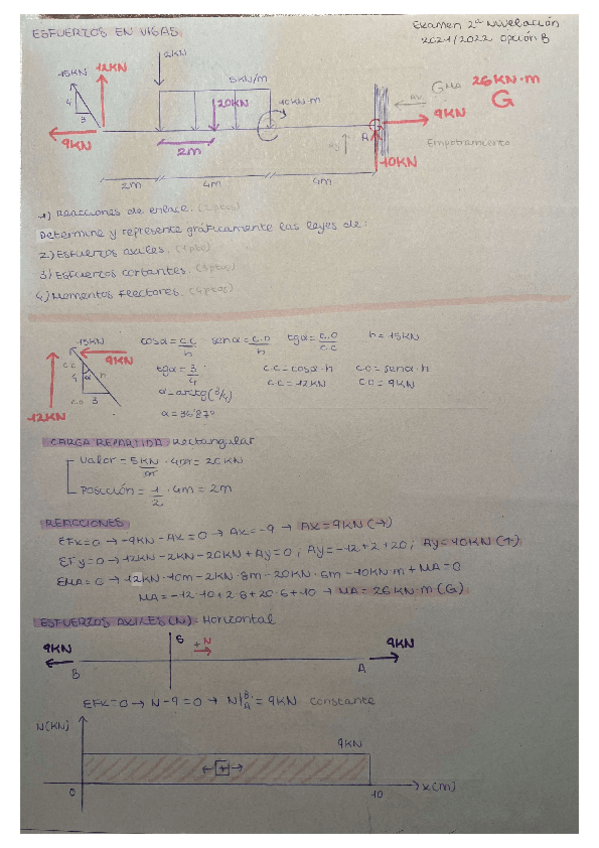 ESFUERZOS EN VIGAS.
Examen 2ª Nivelación
2021/2022 Opción B
2KN
15KN 12KN
5KN/m
GMA
26KN·m
20KN
10KN·m
4
3
9KN
9KN
A
2m
10KN
Empotramiento
2m 4m 4m
1) Reacciones de enlace. (2ptos)
Determine y represente gráficamente las leyes de:
2) Esfuerzos axiales. (1pto)
3) Esfuerzos cortantes. (3ptos)
4) Momentos Flectores. (4ptos)
15KN
9KN
cosα = c.c/h senα = c.o/h tgα = c.o/c.c h = 15KN
c.c
4
α
h
c.o
3
12KN
tgα = 3/4 c.c = cosα·h c.o = senα·h
α = arctg(3/4) c.c = 12KN c.o = 9KN
α = 36'87º
CARGA REPARTIDA: Rectangular
Valor = 5KN/m · 4m = 20KN
Posición = 1/2 · 4m = 2m
REACCIONES
EFx=0 → -9KN - Ax = 0 → Ax = -9 → Ax = 9KN (→)
EFy=0 → 12KN - 2KN - 20KN + Ay = 0; Ay = -12+2+20; Ay = 10KN (↑)
EMA=0 → 12KN·10m - 2KN·8m - 20KN·6m - 10KN·m + MA = 0
MA = -12·10+2·8+20·6+10 → MA = 26KN·m (G)
ESFUERZOS AXILES (N): Horizontal
S
+ N
9KN
9KN
B
A
EFx=0 → N-9=0 → N|B A = 9KN constante
N(KN)
9KN
+
0
10
x(m)